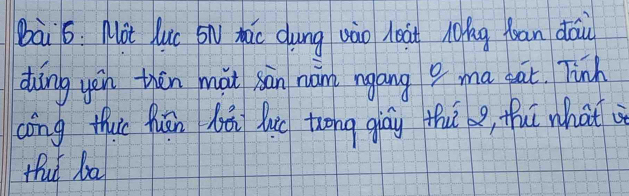 Bài 5: Một lực 5N tác dụng vào loật 10kg ban đầu
đứng yên trên mặt sàn nằm ngang 0 ma sát. Tính
công thực hiện bởi lực trong giây thứ 2, thứ nhất và
thứ ba